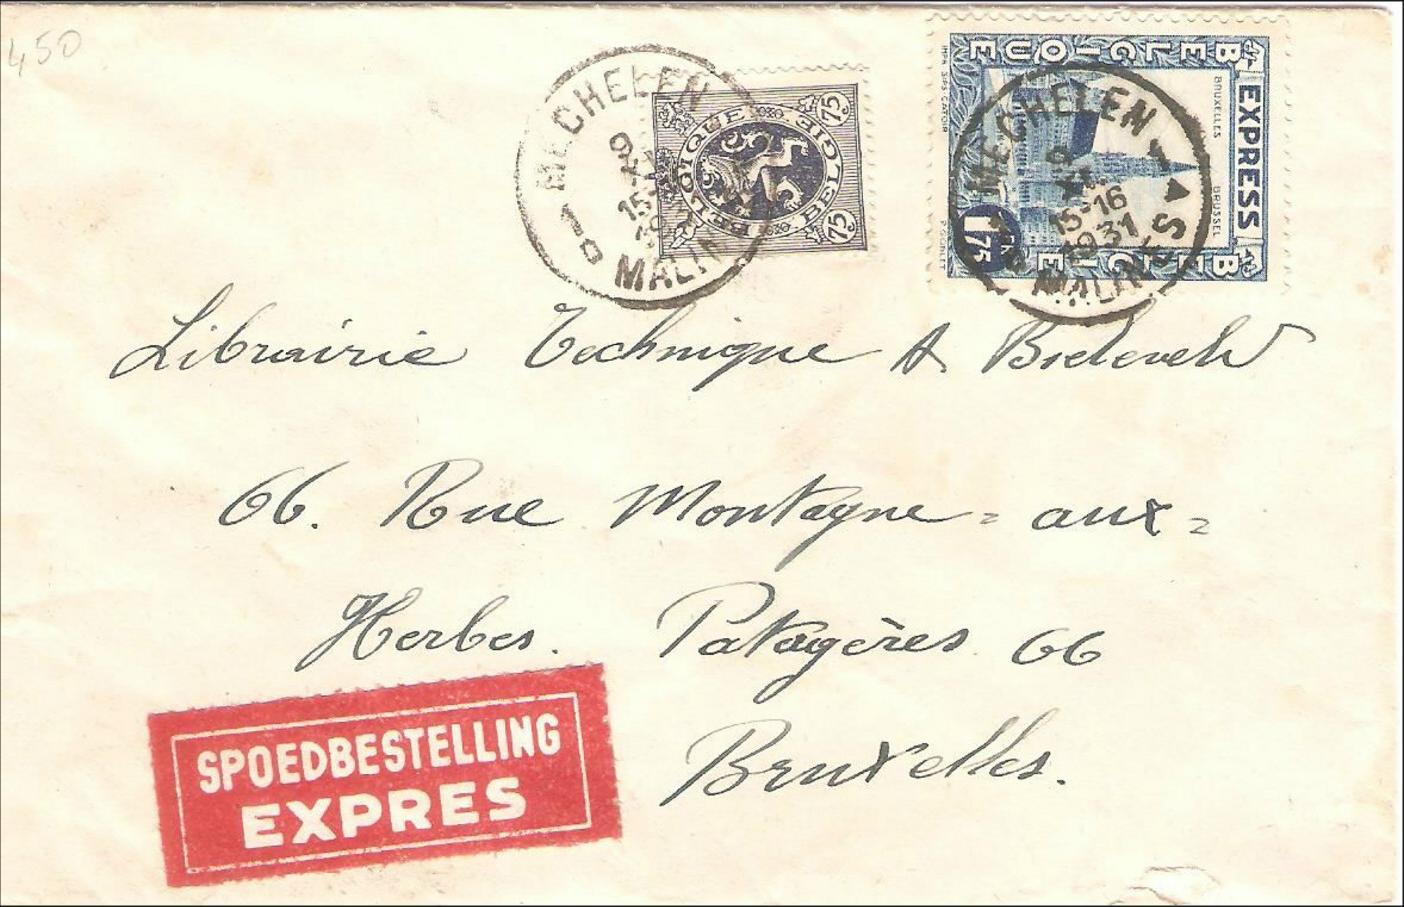 450
MECHELEN
9
XI
15-
193
1D
MALIN
BELGIQUE
BELGIE
75
75
BELGIQUE
BELGIE
EXPRESS
BRUXELLES
BRUSSEL
1 FR 75
MECHELEN
1
9
XI
15-16
1931
MALINES
Librairie Technique A.
66. Rue Montagne = aux =
Herbes. Potagères 66
Bruxelles.
SPOEDBESTELLING
EXPRES